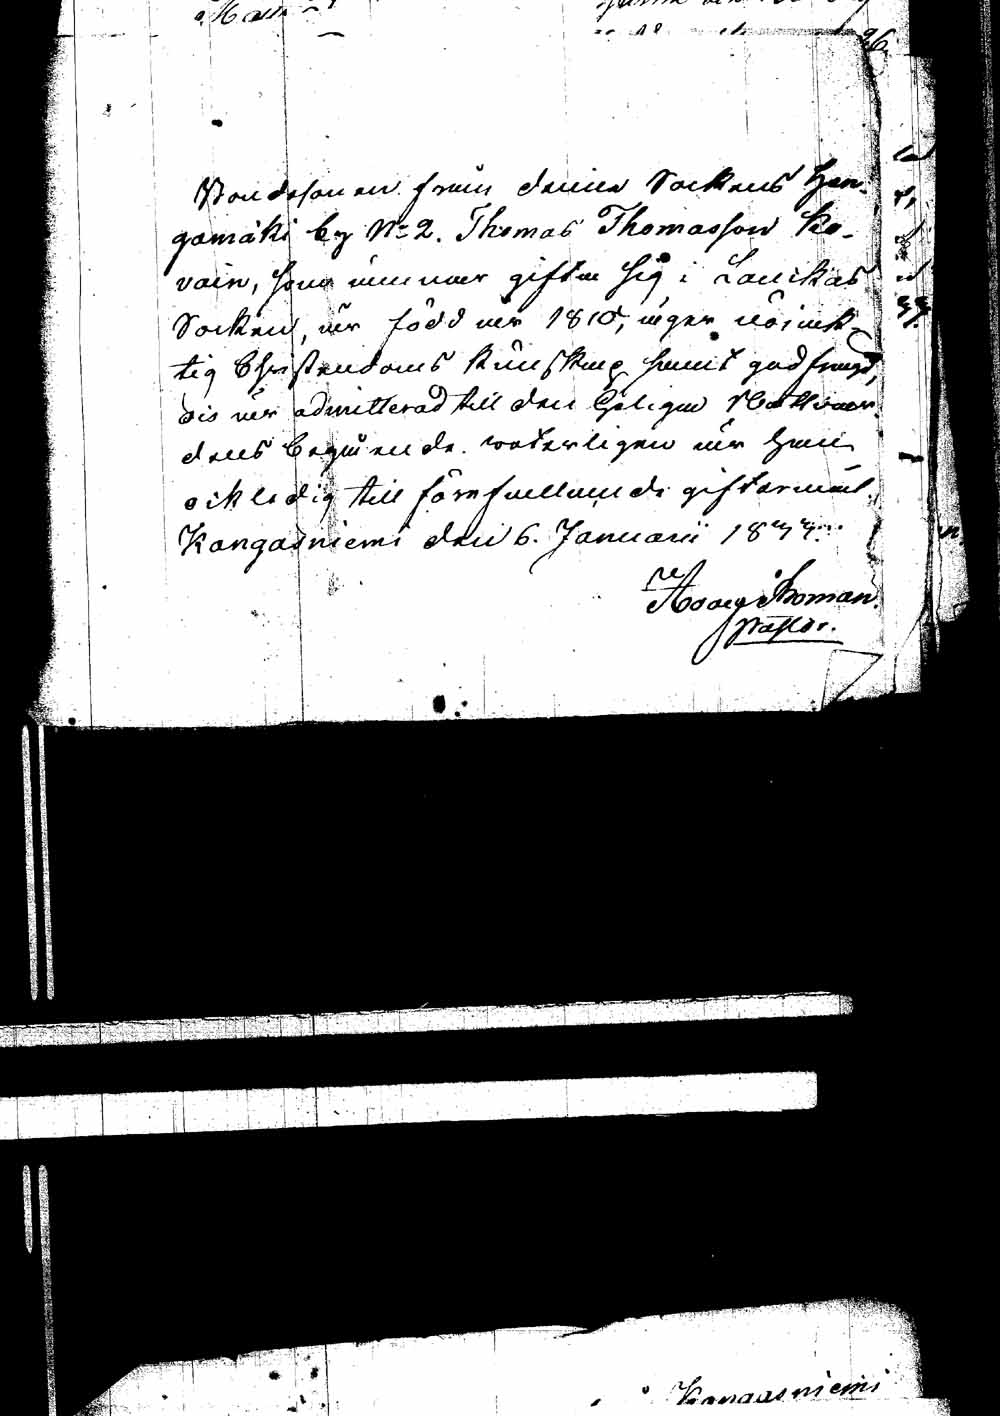 26.
Bondesonen från denna Sockens Han-
gamäki by No 2. Thomas Thomasson Ko-
vain, som ärnar gifta sig i Laukas
Socken, är född år 1810, äger nöjak-
tig Christendoms kunskap samt god fregd,
är admitterad till den Helga Nattvar-
dens begående. är han
ock ledig till förehafvande giftermål.
Kangasniemi den 6. Januarii 1844.
Homan.
Pastor.
Kangasniemi